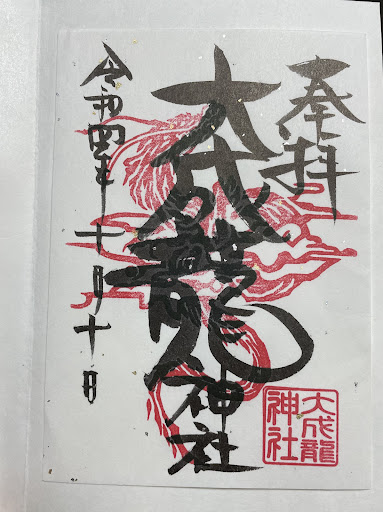 奉拝
大成龍神社
令和四年十月十日
大成龍
神社